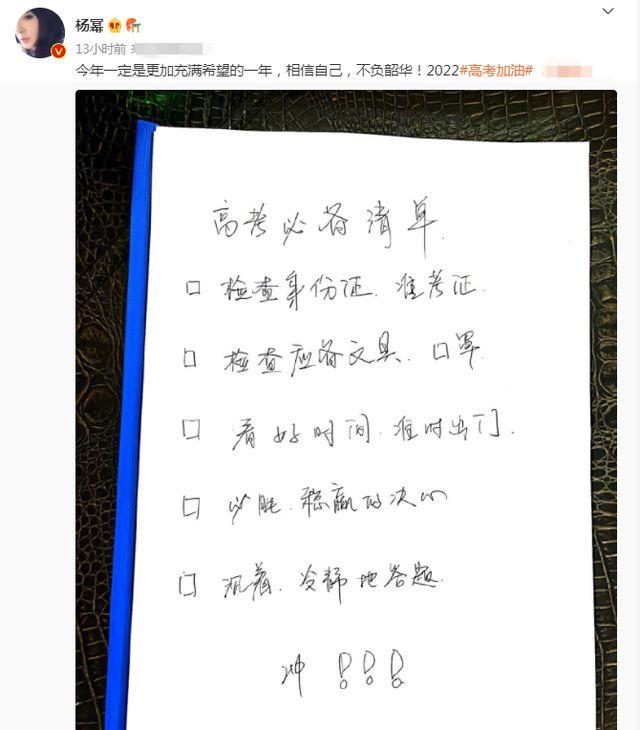 杨幂
13小时前
今年一定是更加充满希望的一年，相信自己，不负韶华！2022#高考加油#
高考必备清单.
检查身份证.准考证.
检查应备文具.口罩.
看好时间.准时出门.
必胜.稳赢的决心
沉着.冷静地答题.
冲！！！